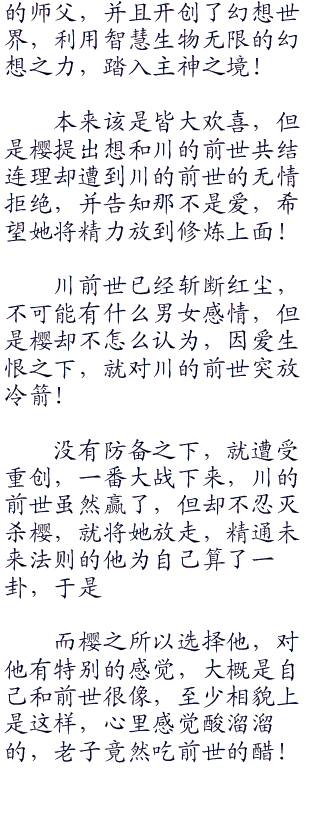 的师父，并且开创了幻想世
界，利用智慧生物无限的幻
想之力，踏入主神之境！
本来该是皆大欢喜，但
是樱提出想和川的前世共结
连理却遭到川的前世的无情
拒绝，并告知那不是爱，希
望她将精力放到修炼上面！
川前世已经斩断红尘，
不可能有什么男女感情，但
是樱却不怎么认为，因爱生
恨之下，就对川的前世突放
冷箭！
没有防备之下，就遭受
重创，一番大战下来，川的
前世虽然赢了，但却不忍灭
杀樱，就将她放走，精通未
来法则的他为自己算了一
卦，于是
而樱之所以选择他，对
他有特别的感觉，大概是自
己和前世很像，至少相貌上
是这样，心里感觉酸溜溜
的，老子竟然吃前世的醋！